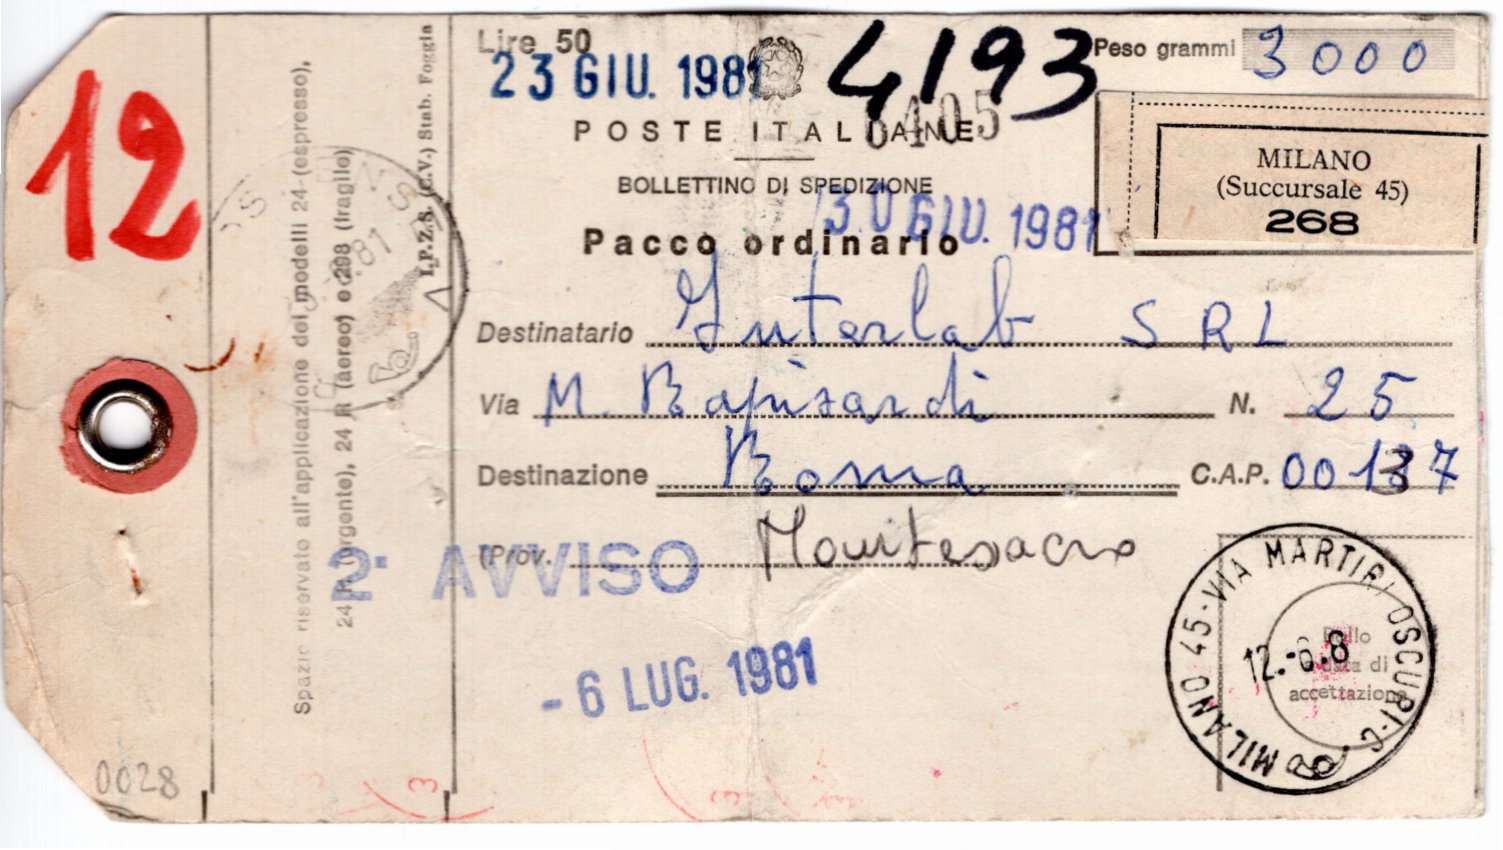 12
Spazio riservato all'applicazione dei modelli 24 (espresso),
24 A (urgente), 24 R (aereo) e 298 (fragile)
I.P.Z.S. (C.V.) Stab. Foggia
Lire 50
23 GIU. 1981
4193
6405
Peso grammi 3000
POSTE ITALIANE
MILANO
(Succursale 45)
268
BOLLETTINO DI SPEDIZIONE
30 GIU. 1981
Pacco ordinario
Destinatario Interlab SRL
Via M. Rapisardi N. 25
Destinazione Roma C.A.P. 00137
(Prov. Montesacro
2° AVVISO
- 6 LUG. 1981
MILANO 45 - VIA MARTIRI OSCURI - C
12.-6.8
Bollo
e data di
accettazione
0028